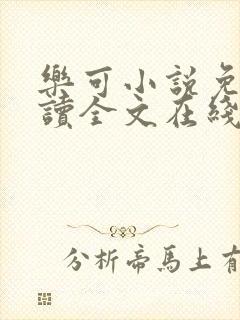 樂可小說免
讀全文在綫
分析帝馬上有